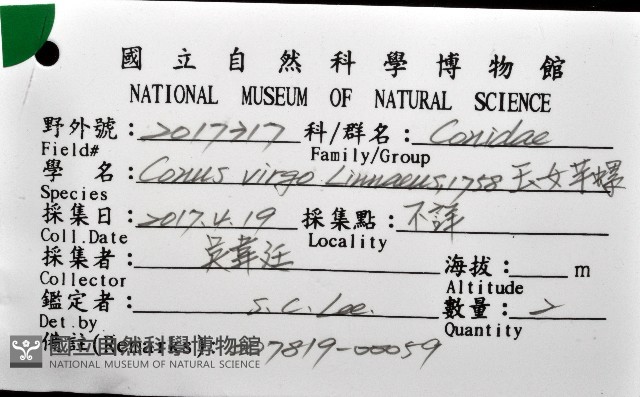 國立自然科學博物館
NATIONAL MUSEUM OF NATURAL SCIENCE
野外號： 科/群名：Conidae
Field# Family/Group
學 名：Conus virgo Linnaeus, 1758 玉女芋螺
Species
採集日：2017.4.19 採集點：不詳
Coll.Date Locality
採集者：吳韋廷 海拔： m
Collector Altitude
鑑定者：S.C. Lee. 數量：2
Det.by Quantity
備註(Remarks) 7819-00059
國立自然科學博物館
NATIONAL MUSEUM OF NATURAL SCIENCE